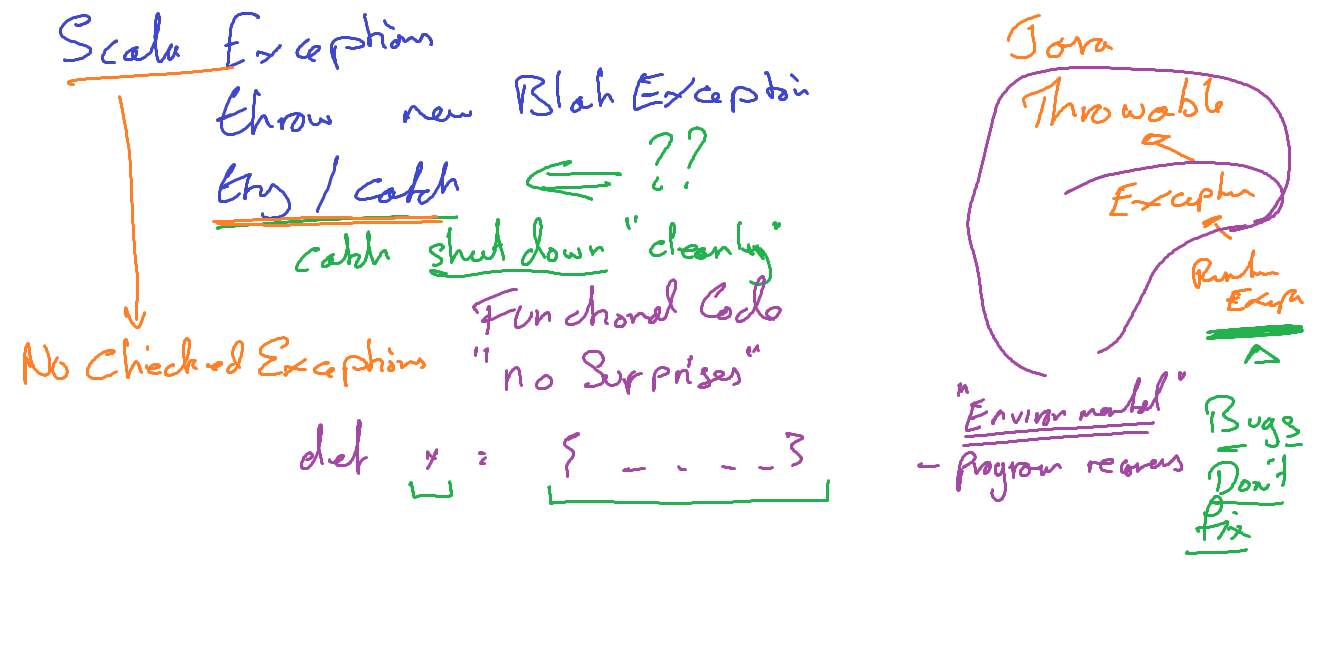 Scala Exceptions
throw new Blah Exception
try / catch
??
catch shut down "cleanly"
Functional Code
"no Surprises"
No Checked Exceptions
def x = { _ . _ . _ }
Java
Throwable
Exception
Runtime
"Environmental"
- Program recovers
Bugs
Don't
fix